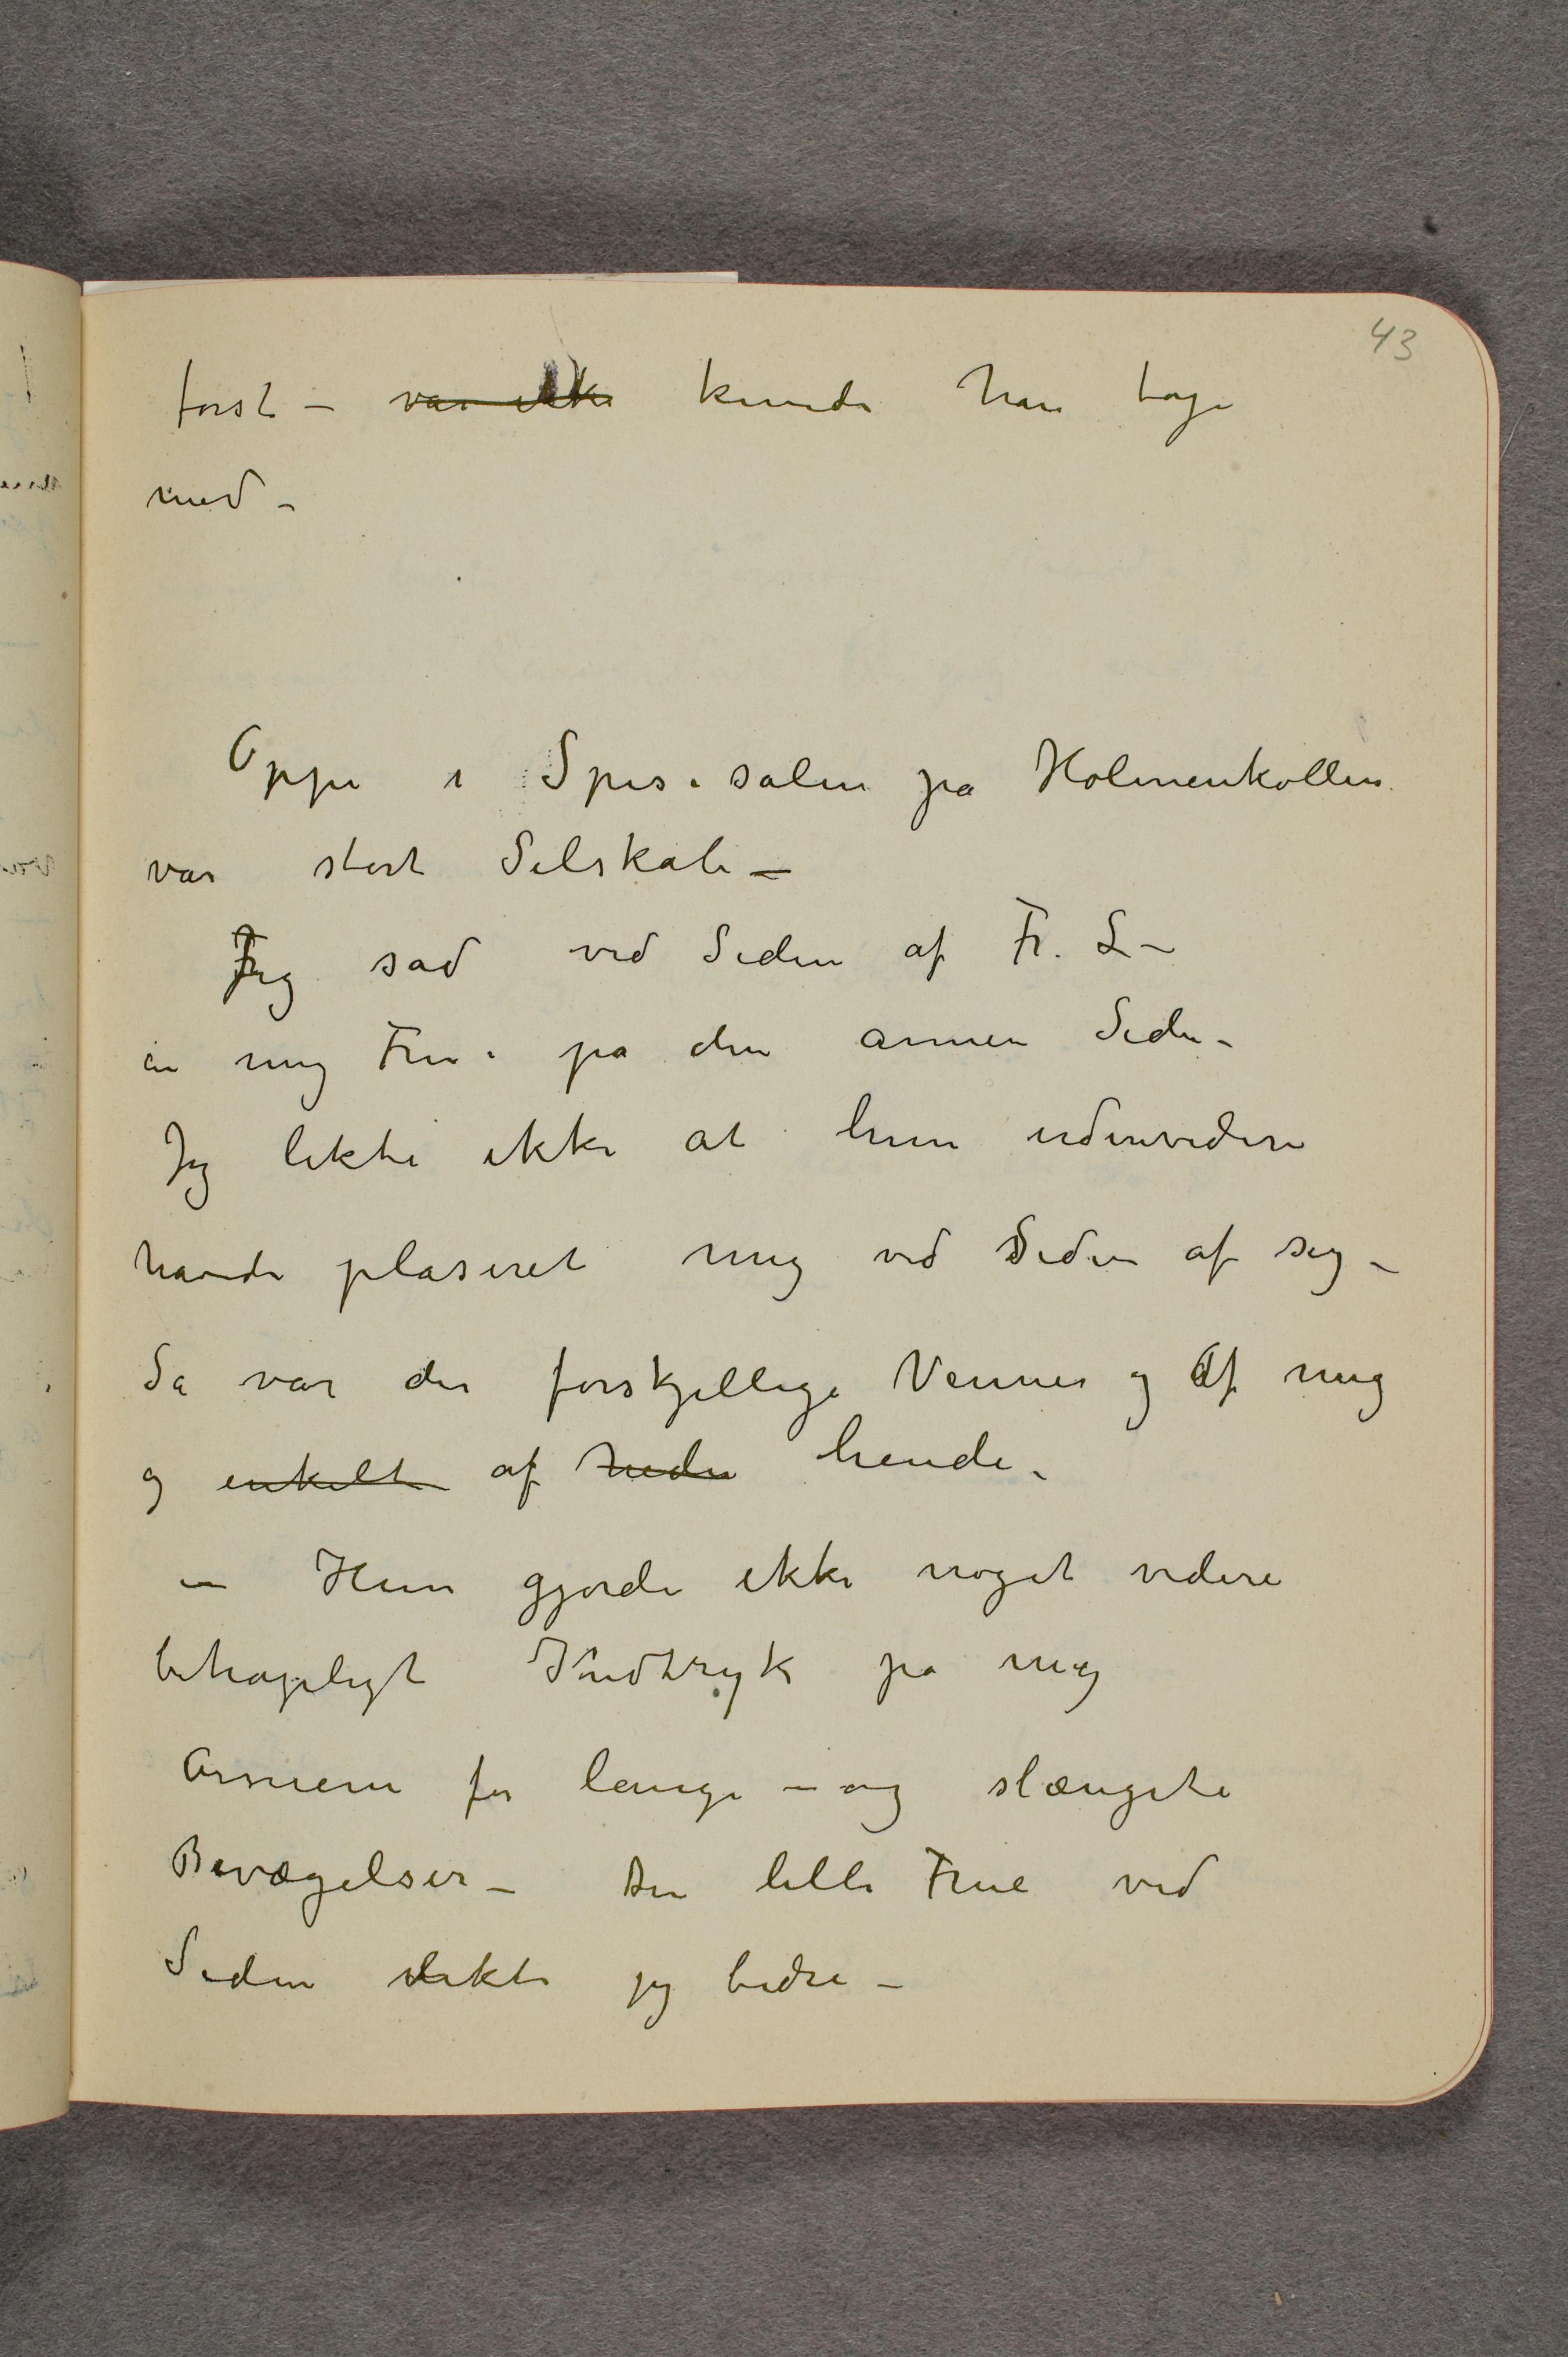 43
først – var ikke kunde han tage
med –
Oppe i Spisesalen på Holmenkollen
var stort Selskab –
Jeg sad ved Siden af Fr. L –
en ung Frue på den annen Side –
Jeg likte ikke at hun udenvidere
havde plaseret mig ved Siden af sig –
Så var der forskjellige Venner og af mig
og enkelt af hende.
– Hun gjorde ikke noget videre
behageligt Indtryk på mig
Armene for lange – og slængete
Bevægelser – Den lille Frue ved
Siden likte jeg bedre –